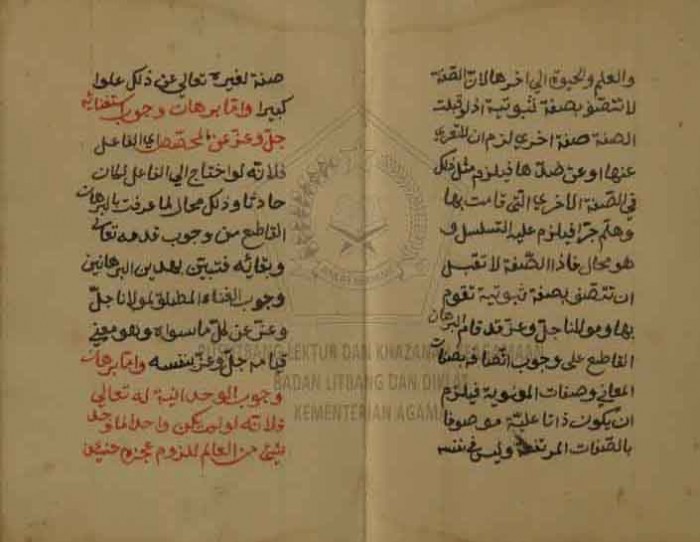 والعلم والحيوة الى اخرها لان الصفة
لا تتصف بصفة ثبوتية اذ لو قبلت
الصفة صفة اخرى لزم ان لا تعرى
عنها او عن ضدها فيلزم مثل ذلك
في الصفة الاخرى التي قامت بها
وهلم جرا فيلزم عليه التسلسل و
هو محال فاذا الصفة لا تقبل
ان تتصف بصفة ثبوتية تقوم
بها ومولانا جل وعز قد قام البرهان
القاطع على وجوب اتصافه بصفات
المعاني وصفات المعنوية فيلزم
ان يكون ذاتا علية موصوفا
بالصفات المرتفعة وليس في نفسه
صفة لغيره تعالى عن ذلك علوا
كبيرا واما برهان وجوب استغنائه
جل وعز عن المخصص اي الفاعل
فلانه لو احتاج الى الفاعل لكان
حادثا وذلك محال لما عرفت بالبرهان
القاطع من وجوب قدمه تعالى
وبقائه فتبين بهذين البرهانين
وجوب الغناء المطلق لمولانا جل
وعز عن كل ما سواه وهو معنى
قيامه جل وعز بنفسه واما برهان
وجوب الوحدانية له تعالى
فلانه لو لم يكن واحدا لما وجد
شيئ من العالم للزوم عجزه حينئذ
PUSLITBANG LEKTUR DAN KHAZANAH KEAGAMAAN
BADAN LITBANG DAN DIKLAT
KEMENTERIAN AGAMA